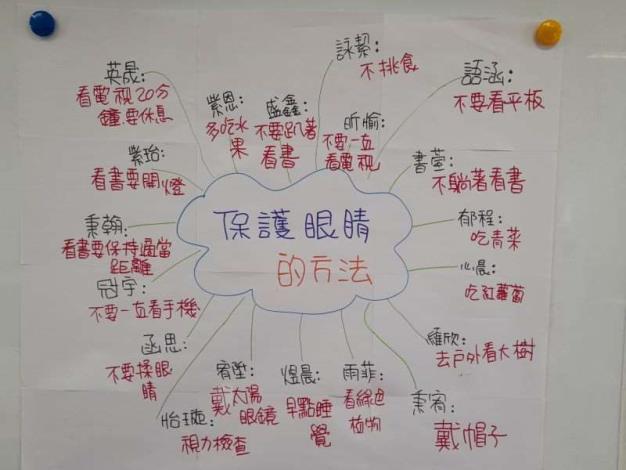 保護眼睛
的方法
詠絜:
不挑食
語涵:
不要看平板
昕愉:
不要一直
看電視
書萱:
不躺著看書
郁程:
吃青菜
心晨:
吃紅蘿蔔
維欣:
去戶外看大樹
秉宥:
戴帽子
雨菲:
看綠色
植物
煜晨:
早點睡
覺
宥塏:
戴太陽
眼鏡
怡璇:
視力檢查
函思:
不要揉眼
睛
冠宇:
不要一直看手機
秉翰:
看書要保持適當
距離
紫珆:
看書要開燈
英晟:
看電視20分
鐘要休息
紫恩:
多吃水
果
盛鑫:
不要趴著
看書